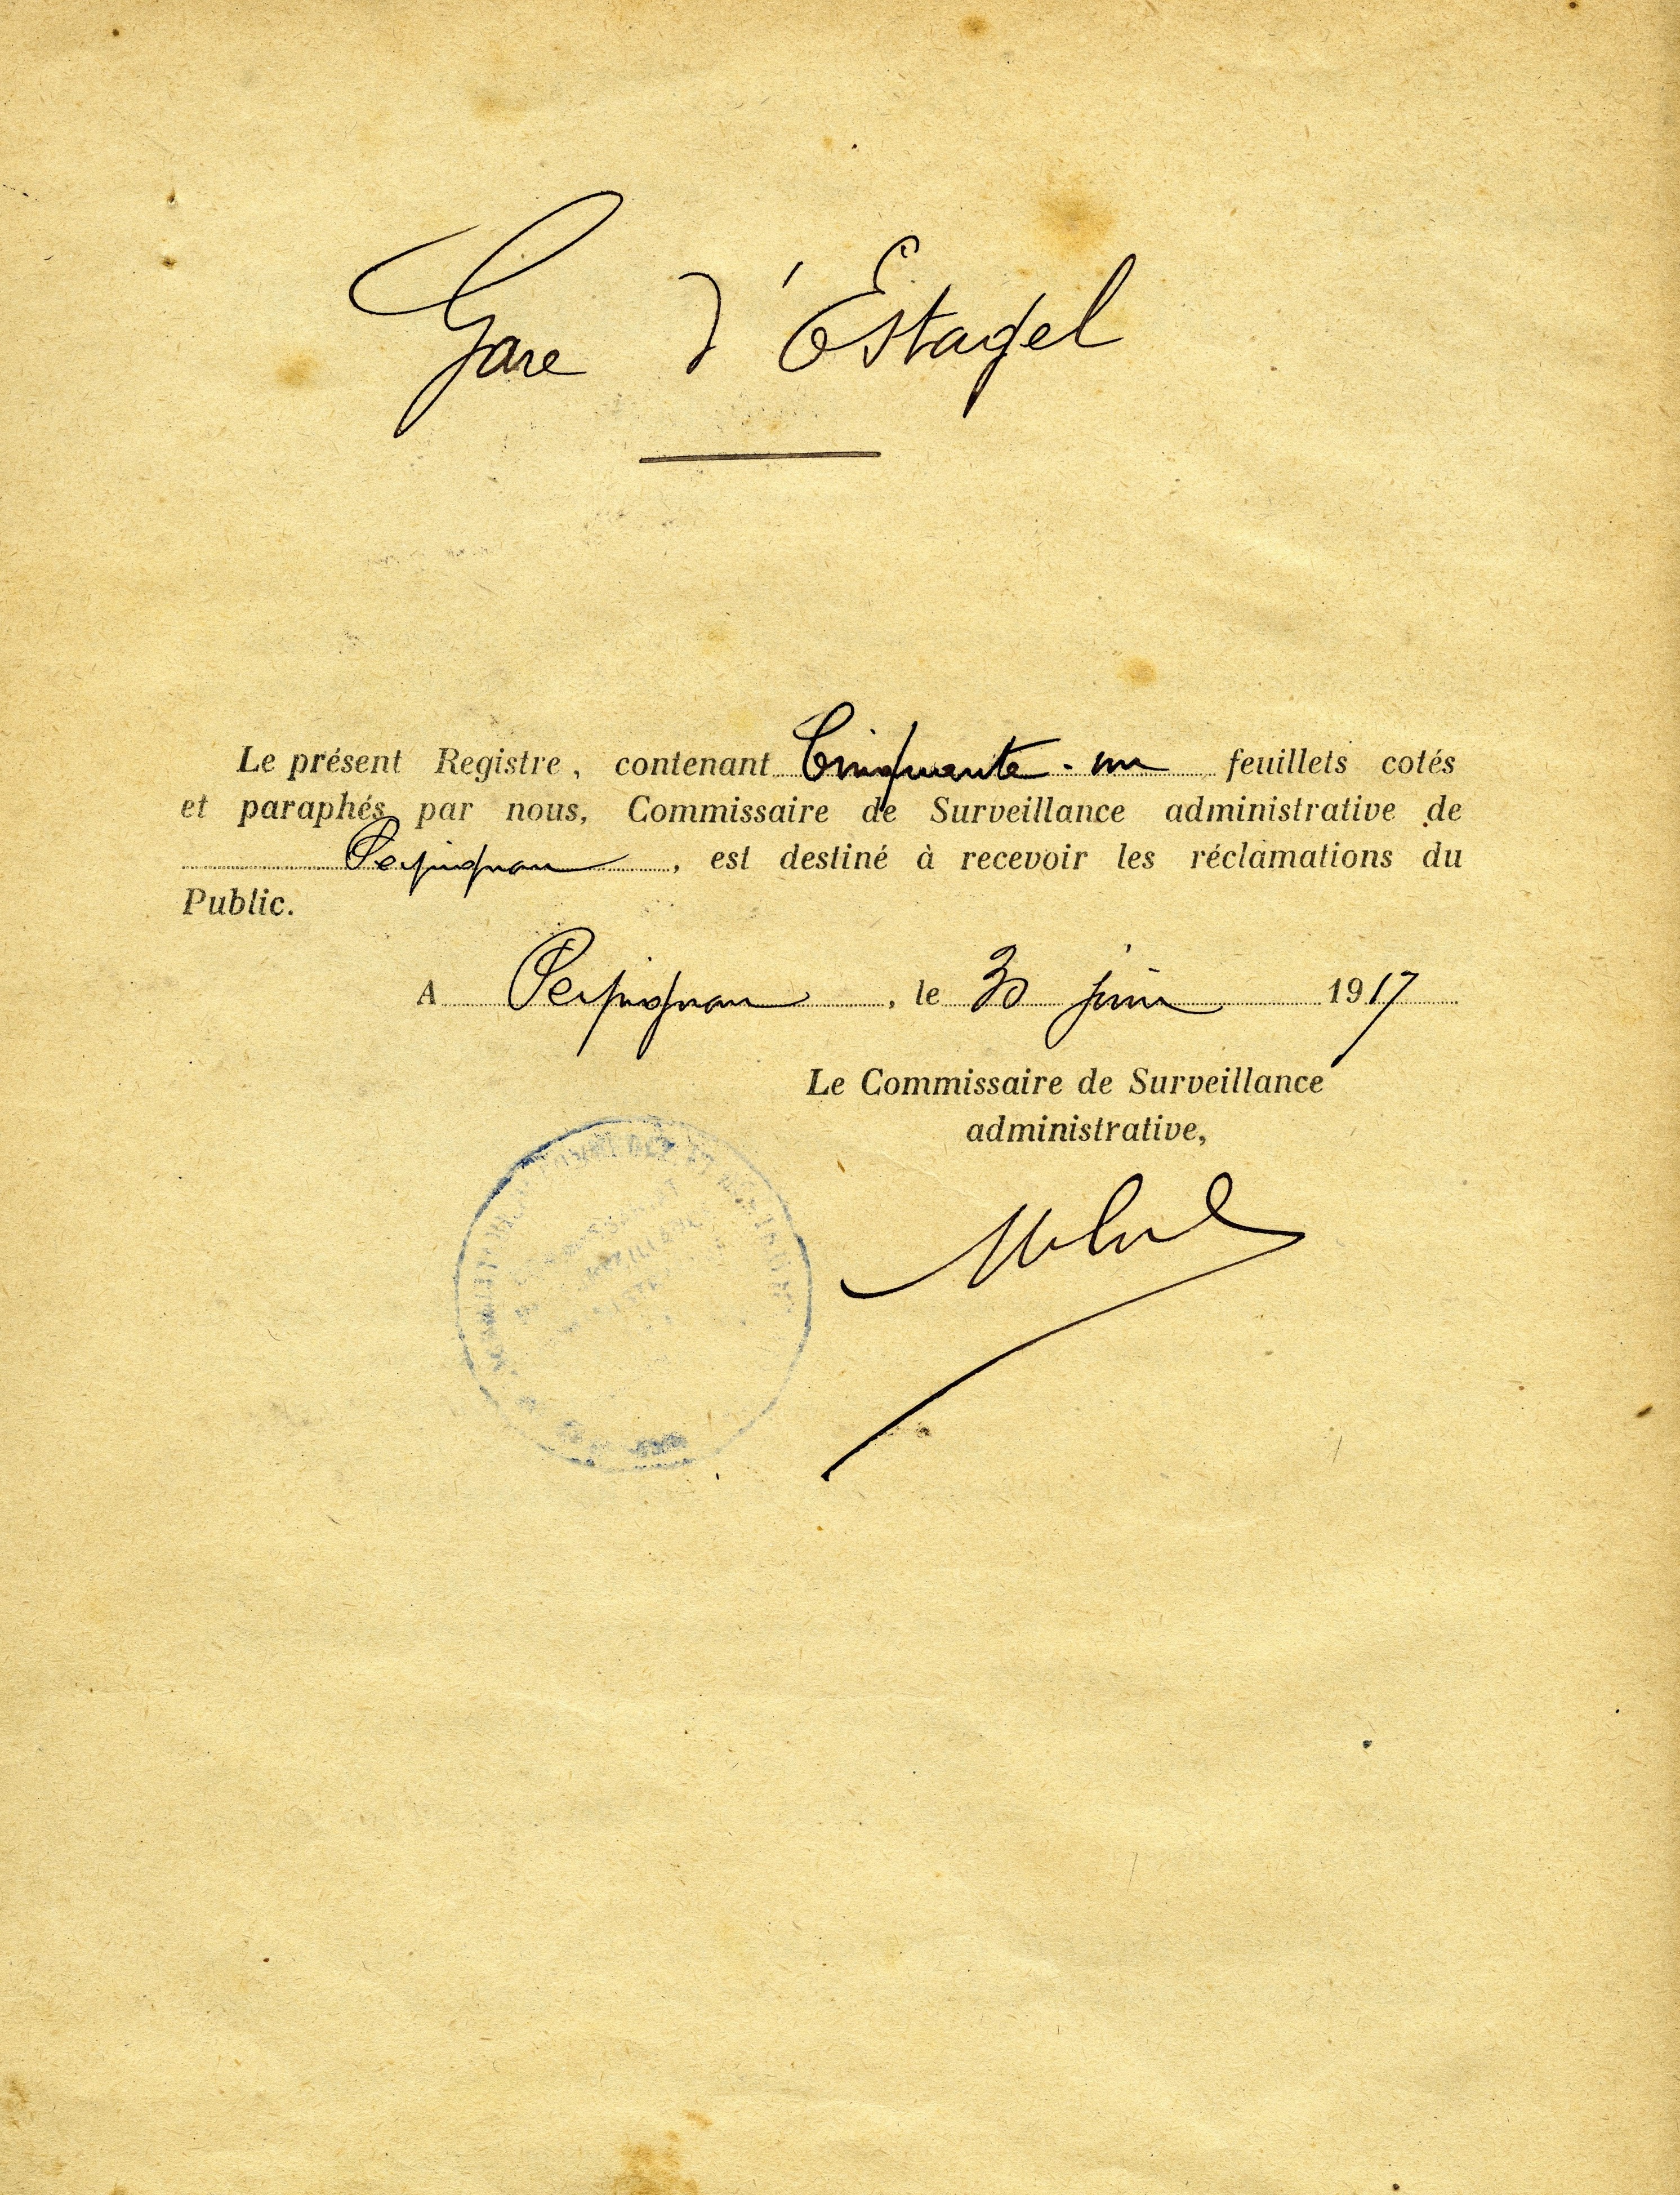 Gare d'Estagel
Le présent Registre, contenant Cinquante-un feuillets cotés
et paraphés par nous, Commissaire de Surveillance administrative de
Perpignan, est destiné à recevoir les réclamations du
Public.
A Perpignan, le 30 juin 1917
Le Commissaire de Surveillance
administrative,